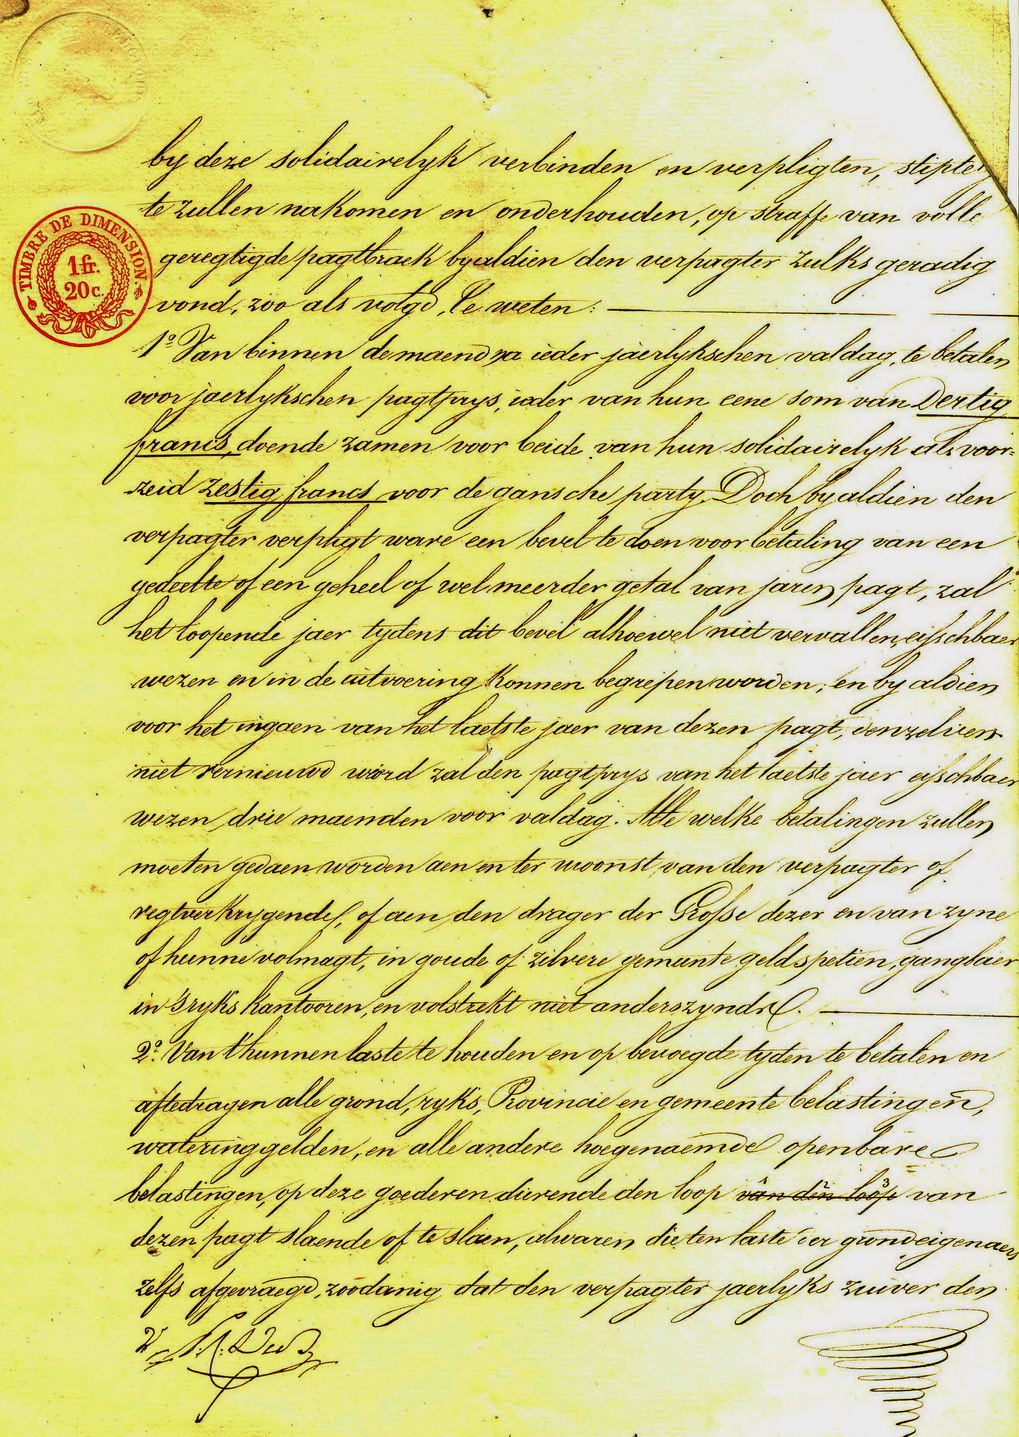 by deze solidairelyk verbinden en verpligten, stipte
te zullen nakomen en onderhouden, op straffe van volle
TIMBRE DE DIMENSION.
1 fr.
20 c.
geregtigde pagtbraek byaldien den verpagter zulks geradig
vond, zoo als volgd, te weten:
1° Van binnen de maend na ieder jaerlykschen valdag, te betalen
voor jaerlykschen pagtprys, ieder van hun eene som van Dertig
francs, doende zamen voor beide van hun solidairelyk als voor=
zeid zestig francs voor de gansche party. Doch byaldien den
verpagter verpligt ware een bevel te doen voor betaling van een
gedeelte of een geheel of wel meerder getal van jaren pagt, zal
het loopende jaer tydens dit bevel alhoewel niet vervallen, eischbaer
wezen en in de uitvoering konnen begrepen worden; en by aldien
voor het ingaen van het laetste jaer van dezen pagt, denzelven
niet vernieuwd word zal den pagtprys van het laetste jaer eischbaer
wezen drie maenden voor valdag. Alle welke betalingen zullen
moeten gedaen worden aen en ter woonst van den verpagter of
regtverkrygende, of aen den drager der Grosse dezer en van zyne
of hunne volmagt, in goude of zilvere gemunte geldspetien, gangbaer
in 's ryks kantooren, en volstrekt niet anderszynde.
2° Van t' hunnen laste te houden en op bevoegde tyden te betalen en
aftedragen alle grond, ryks, Provincie en gemeente belastingen,
wateringgelden, en alle andere hoegenaemde openbare
belastingen, op deze goederen dierende den loop van den loop van
dezen pagt slaende of te slaen, alwaren die ten laste der grondeigenaers
zelfs afgevraegd, zoodanig dat den verpagter jaerlyks zuiver den